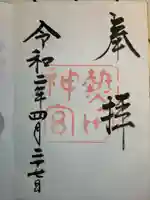 奉拝
熱田
神宮
令和二年四月二十七日